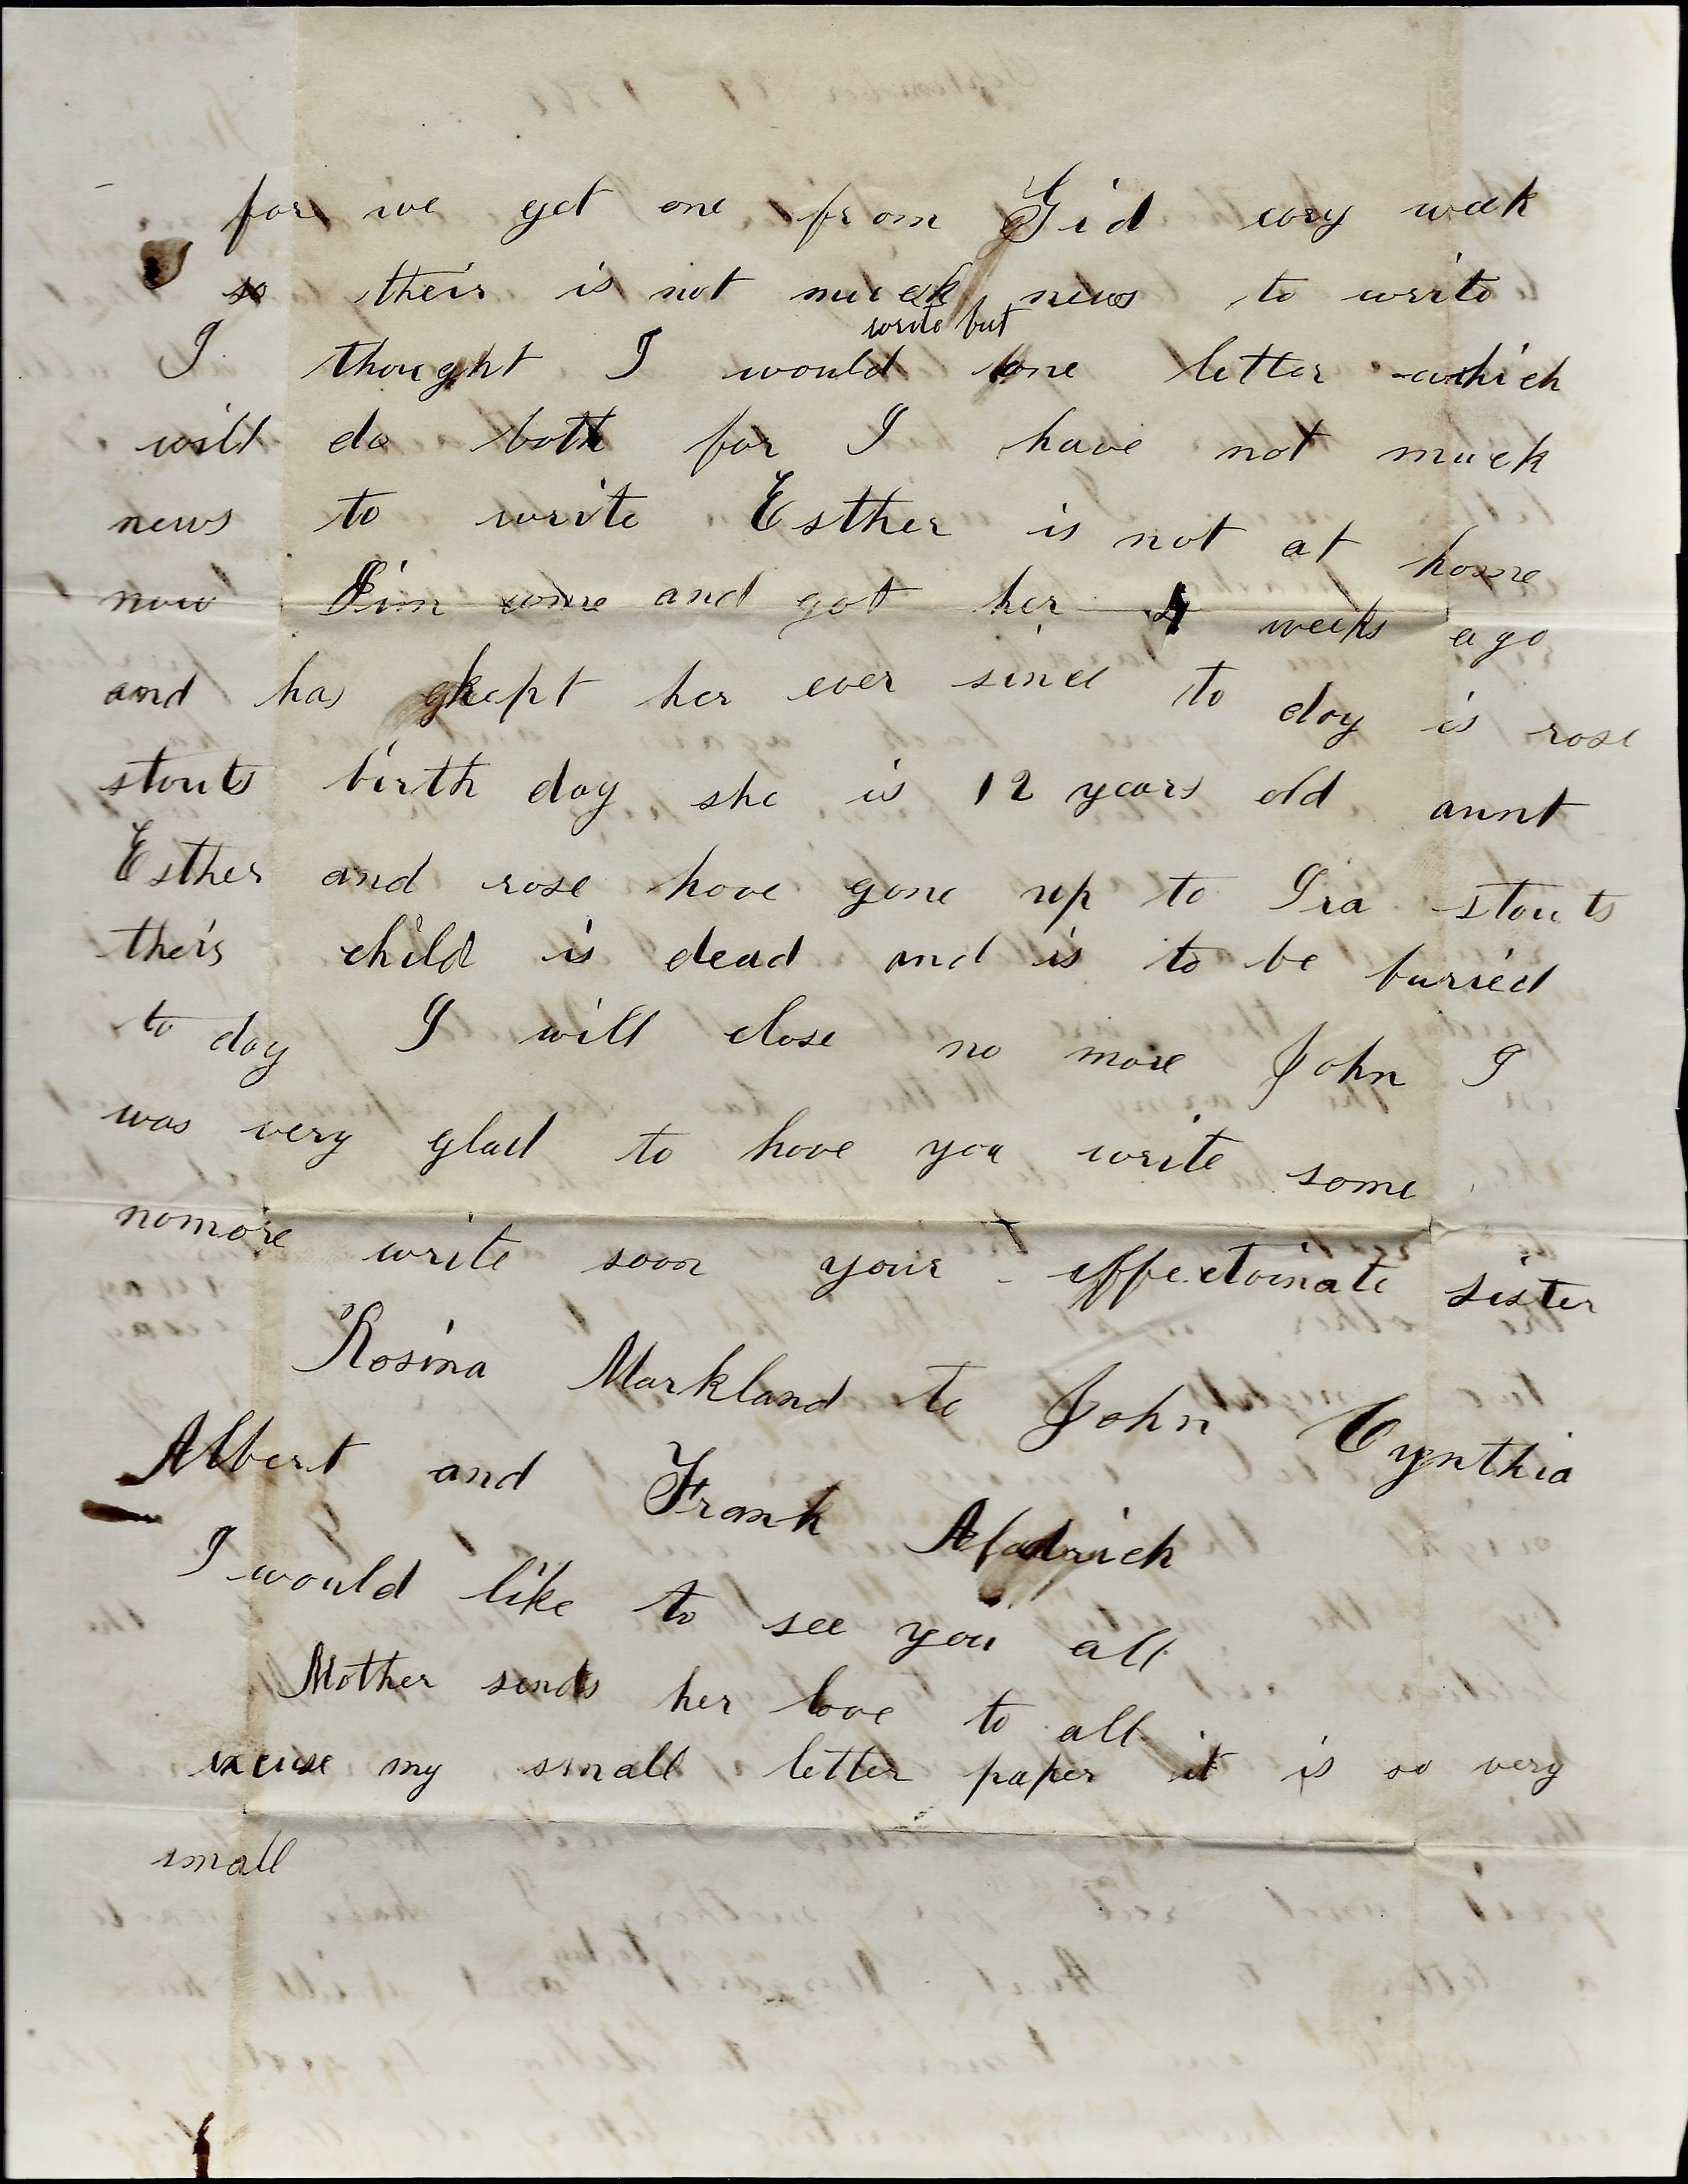 for we get one from Gid evry week
so their is not much news to write
I thought I would write but one letter which
will do both for I have not much
news to write Esther is not at home
now Jim come and got her 4 weeks ago
and has kept her ever since to day is rose
stouts birth day she is 12 years old aunt
Esther and rose have gone up to Ira stouts
their child is dead and is to be buried
to day I will close no more John I
was very glad to have you write some
nomore write soon your effectoinate sister
Rosina Markland to John Cynthia
Albert and Frank Aldrich
I would like to see you all
Mother sends her love to all
excuse my small letter paper it is so very
small